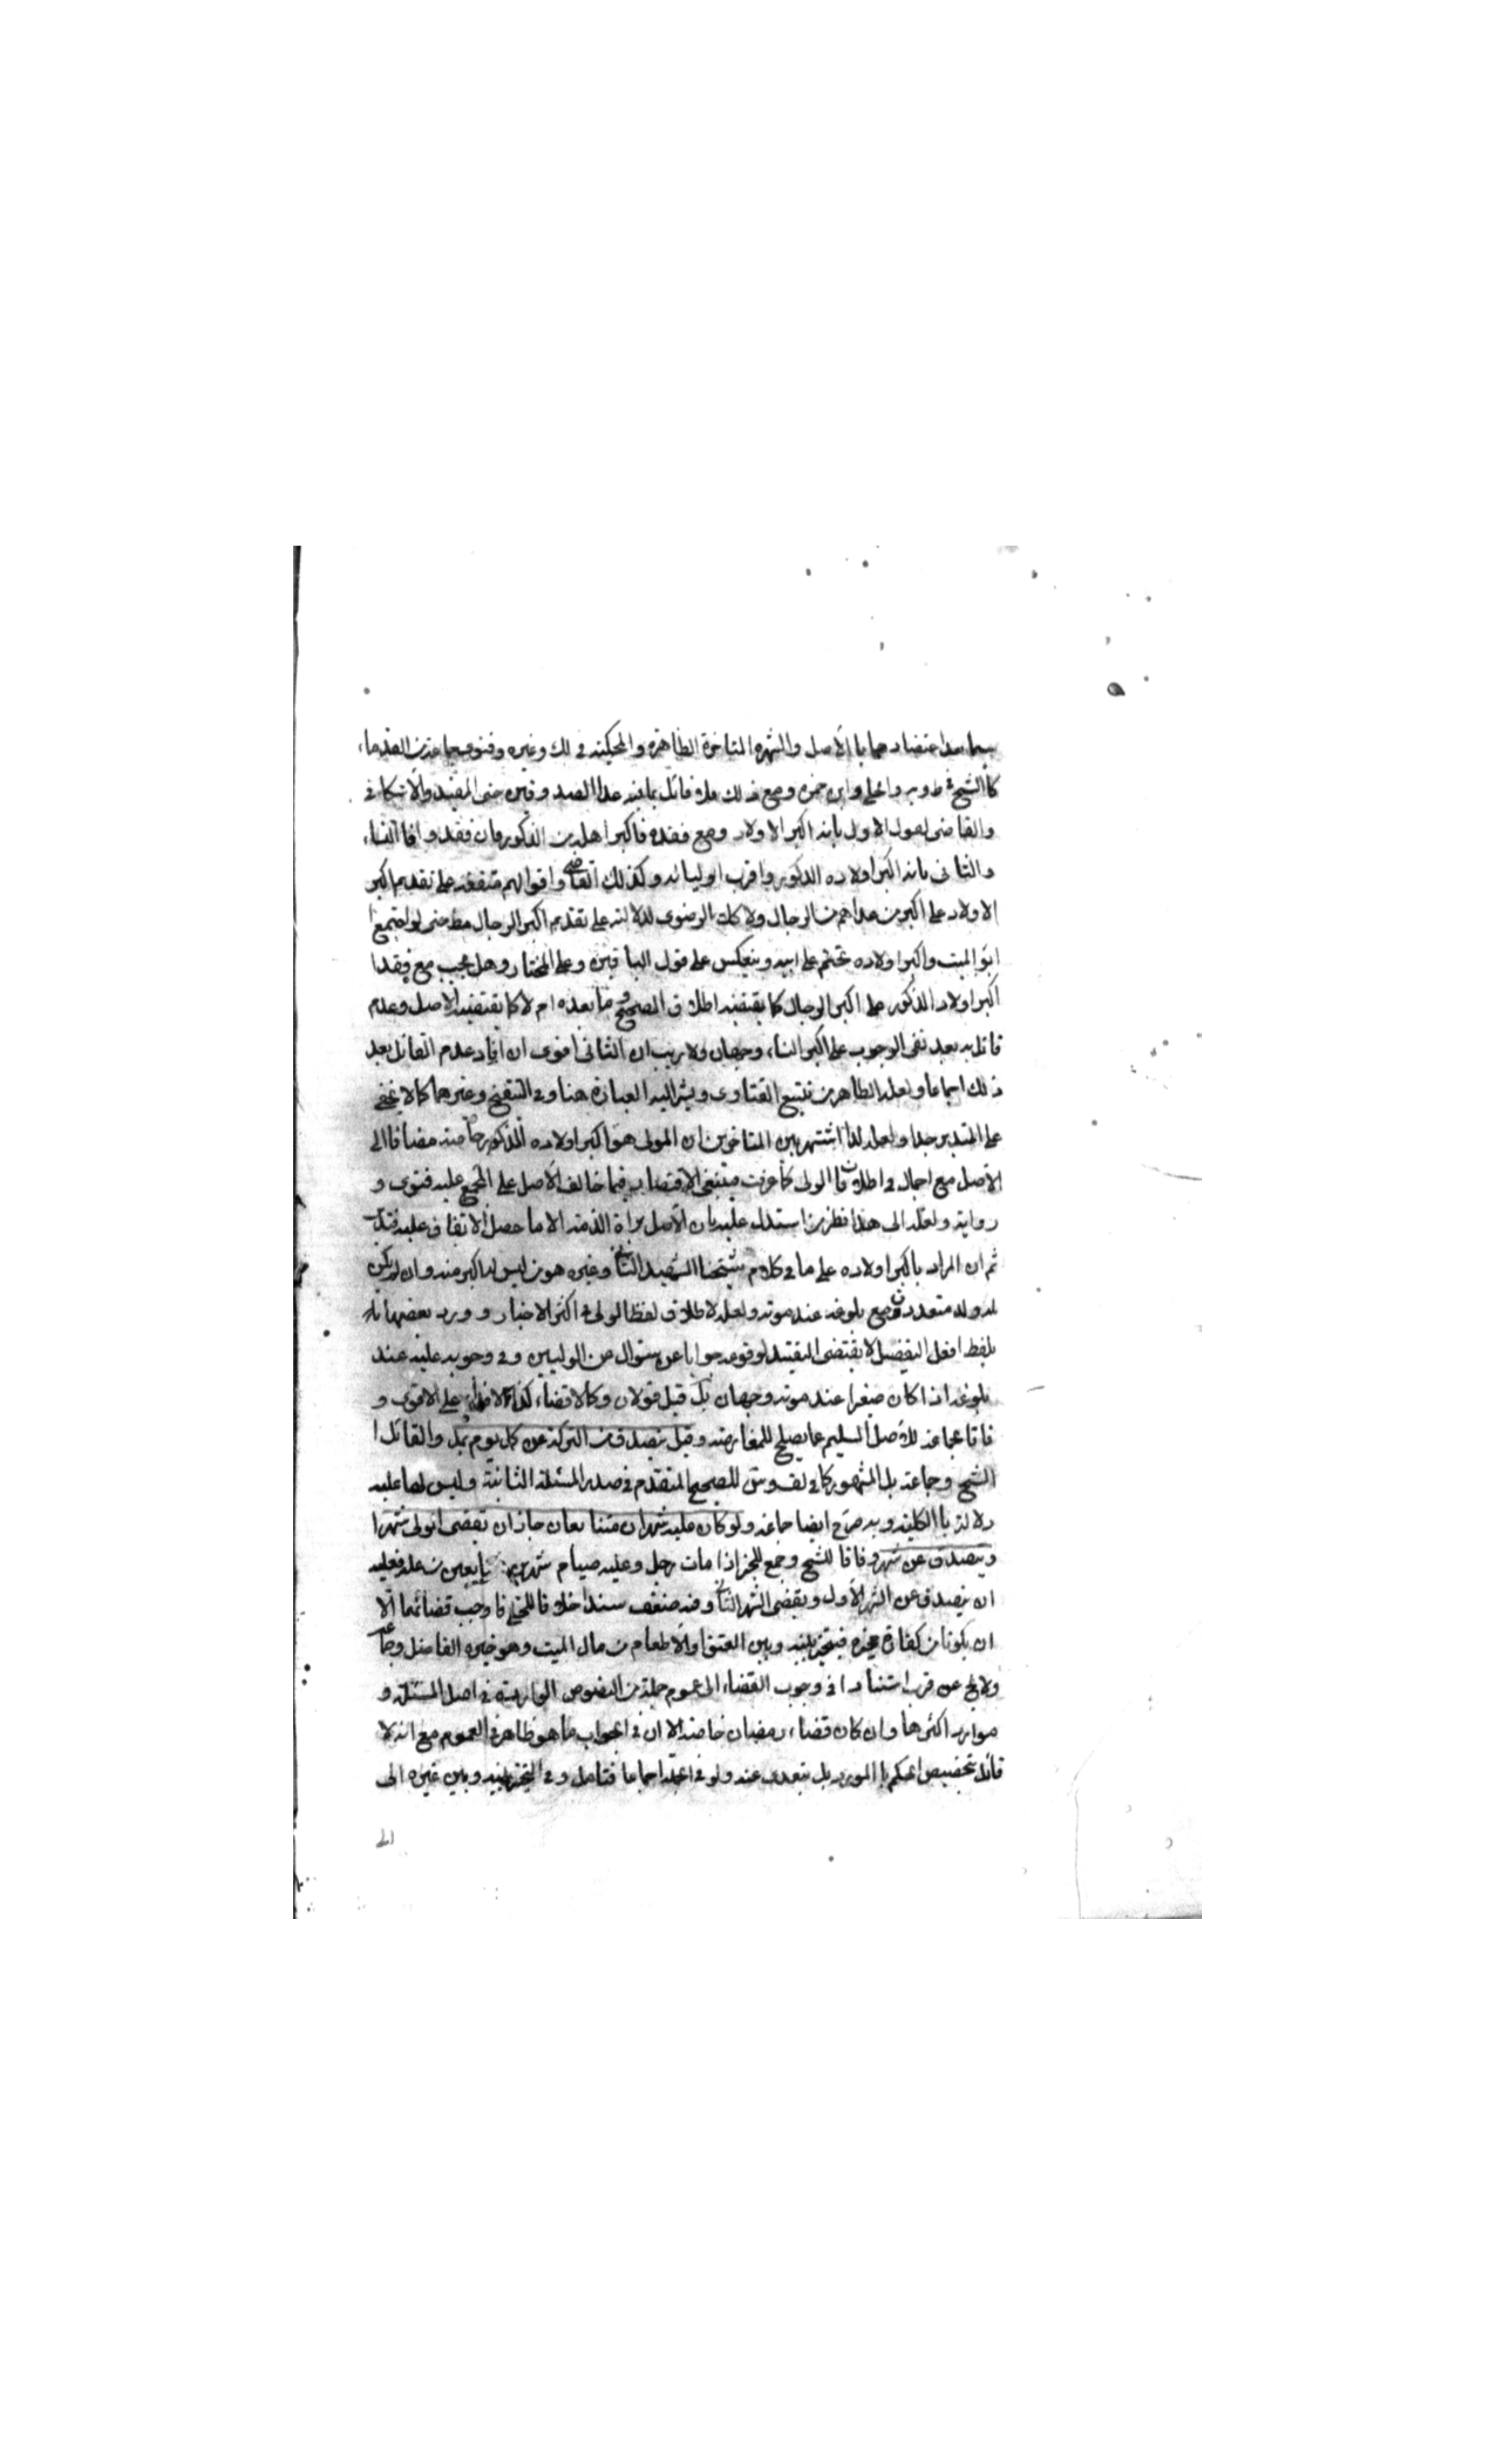 سيما بعد اعتضادهما بالاصل والشهرة المتاخرة الظاهرة والمحكية في لك وغيره وفتوى جماعة من القدماء
كالشيخ في ط ويه والحلي وابن حمزة ومع ذلك فلا قائل بما فيه عدا الصدوقين حتى المفيد والاسكافي
والقاضي لقول الاول بانه اكبر الاولاد ومع فقده فاكبر اهله من الذكور فان فقدوا فالنساء
والثاني بانه اكبر اولاده الذكور واقرب اوليائه وكذلك القاضي واقوالهم متفقة على تقديم اكبر
الاولاد على اكبر من عداهم من الرجال ولا كك الرضوي لدلالته على تقديم اكبر الرجال مط حتى لو اجتمع
ابو الميت واكبر اولاده تحتم على ابيه وينعكس على قول الباقين وعلى المختار وهل يجب مع فقد
اكبر اولاد الذكور على اكبر الرجال كما يقتضيه اطلاق الصحيح وما بعده ام لا كما يقتضيه الاصل وعدم
قائل به بعد نفي الوجوب على اكبر النساء وجهان ولا ريب ان الثاني اقوى ان افاد عدم القائل بعد
ذلك اجماعا ولعله الظاهر من تتبع الفتاوى ويشير اليه العبارة هنا وفي التنقيح وغيرهما كما لا يخفى
على المتدبر جدا ولعله لذا اشتهر بين المتاخرين ان الولي هو اكبر اولاده الذكور خاصة مضافا الى
الاصل مع اجمال في اطلاق الولي كما عرفت فينبغي الاقتصار فيما خالف الاصل على المجمع عليه فتوى و
رواية ولعله الى هذا نظر من استدل عليه بان الاصل براءة الذمة الا ما حصل الاتفاق عليه فتدبر
ثم ان المراد باكبر اولاده على ما في كلام شيخنا الشهيد الثاني وغيره هو من ليس له اكبر منه وان لم يكن
له ولد متعددون مع بلوغه عند موته ولعله لاطلاق لفظ الولي في اكثر الاخبار وورد بعضها به
بلفظ افعل التفضيل لا يقتضي التقييد لوقوعه جوابا عن سؤال عن الوليين وفي وجوبه عليه عند
بلوغه اذا كان صغيرا عند موته وجهان بل قيل قولان وكما لا قضاء كذا لا فدية على الاقوى و
فاقا لجماعة للاصل السليم عما يصلح للمعارضة وقيل يتصدق من التركة عن كل يوم بمد والقائل
الشيخ وجماعة بل المشهور كما في لف وس للصحيح المتقدم في صدر المسئلة الثانية وليس لها عليه
دلالة بالكلية وبه صرح ايضا جماعة ولو كان عليه شهران متتابعان جاز ان يقضي الولي شهرا
ويتصدق عن شهر وفاقا للشيخ وجمع للخبر اذا مات رجل وعليه صيام شهرين متتابعين من علة فعليه
ان يتصدق عن الشهر الاول ويقضي الشهر الثاني وفيه ضعف سندا خلافا للحلي فاوجب قضائهما الا
ان يكونا من كفارة مخيرة فيتخير بينه وبين العتق او الاطعام من مال الميت وهو خيرة الفاضل وجماعة
ولا يخ عن قرب استنادا في وجوب القضاء الى عموم جملة من النصوص الواردة في اصل المسئلة و
موارد اكثرها وان كان قضاء رمضان خاصة الا ان في الجواب ما هو ظاهر في العموم مع انه لا
قائل بتخصيص الحكم بالمورد بل يتعدى عنه ولو في الجملة اجماعا فتامل وفي التخيير بينه وبين غيره الى
الى